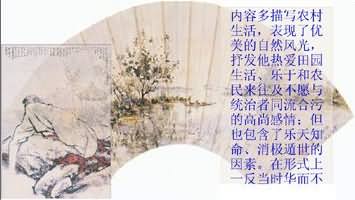 内容多描写农村
生活，表现了优
美的自然风光，
抒发他热爱田园
生活、乐于和农
民来往及不愿与
统治者同流合污
的高尚感情；但
也包含了乐天知
命、消极遁世的
因素。在形式上
一反当时华而不